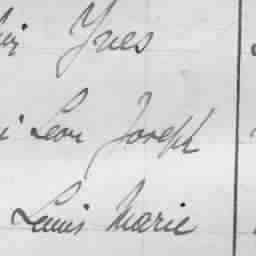 Yves
Leon Joseph
Louis Marie